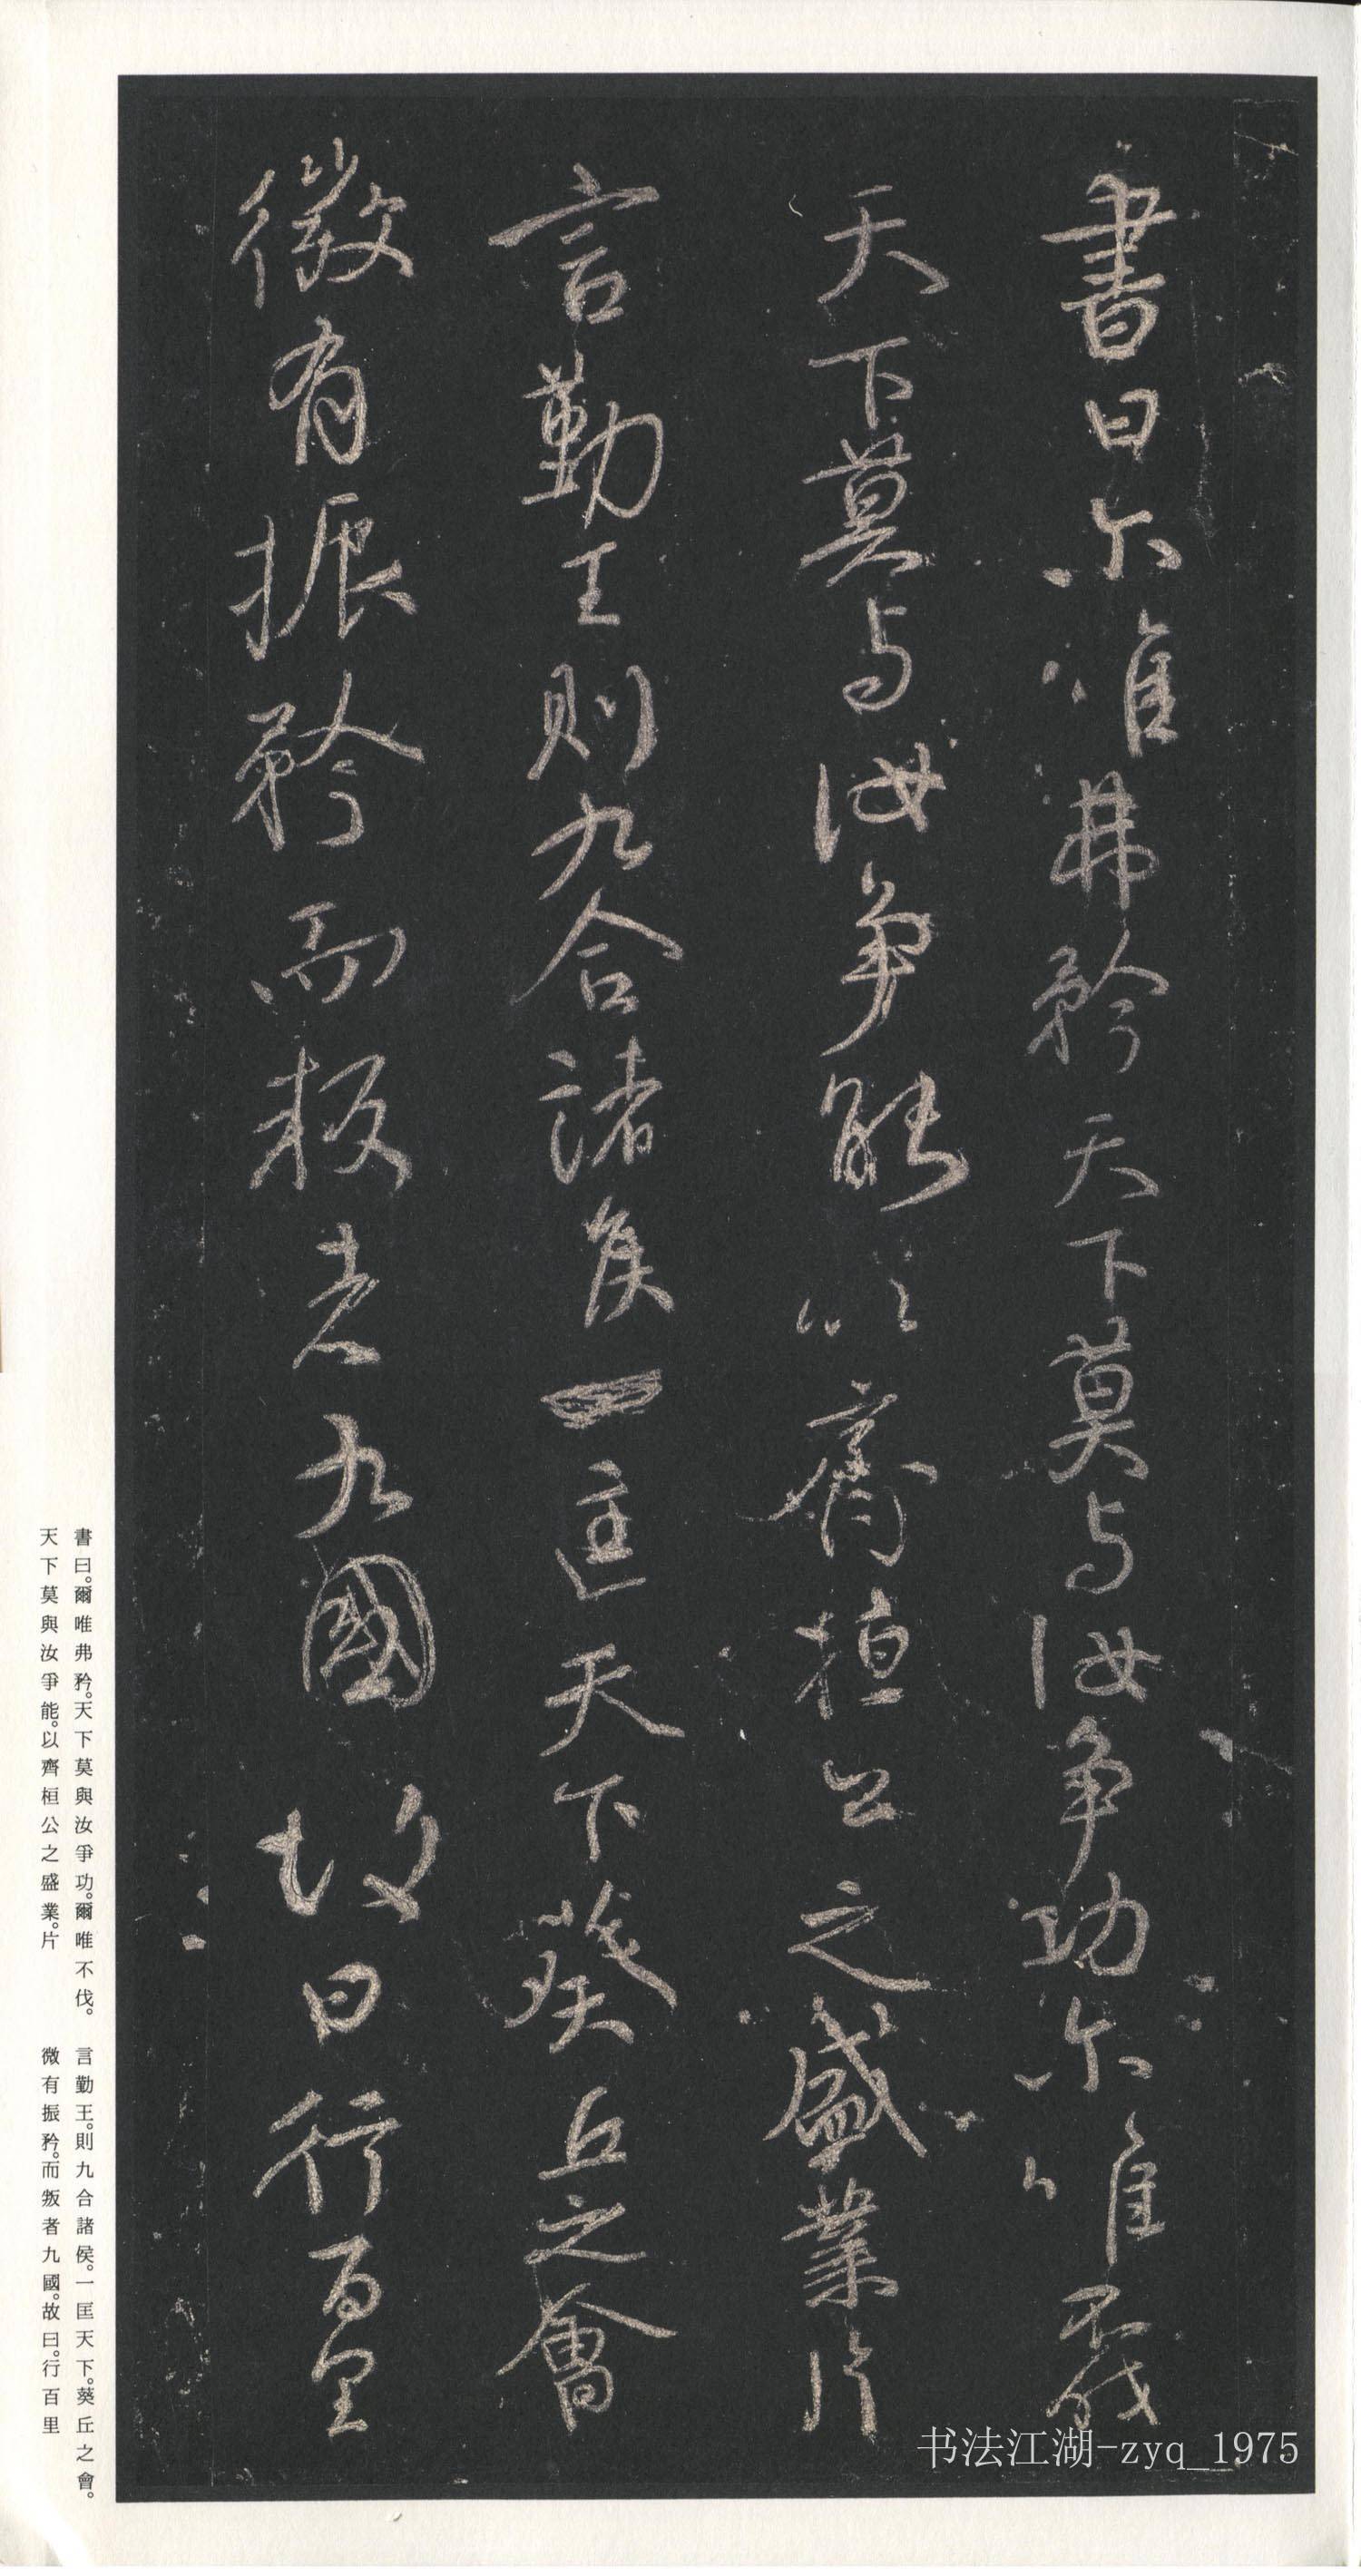 書曰尔唯弗矜天下莫与汝争功尔唯不伐
天下莫与汝争能以齊桓公之盛業片
言勤王則九合諸侯一匡天下葵丘之會
微有振矜而叛者九國故曰行百里
書曰。爾唯弗矜。天下莫與汝爭功。爾唯不伐。
天下莫與汝爭能。以齊桓公之盛業。片
言勤王。則九合諸侯。一匡天下。葵丘之會。
微有振矜。而叛者九國。故曰。行百里
书法江湖-zyq_1975